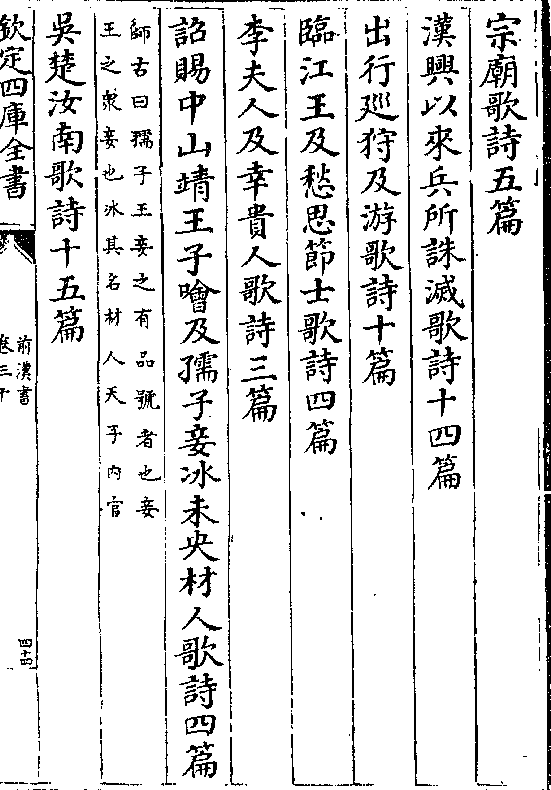 宗廟歌詩五篇
漢興以來兵所誅滅歌詩十四篇
出行廵狩及游歌詩十篇
臨江王及愁思節士歌詩四篇
李夫人及幸貴人歌詩三篇
詔賜中山靖王子噲及孺子妾冰未央材人歌詩四篇
師古曰孺子王妾之有品號者也妾
王之衆妾也冰其名材人天子内官
吳楚汝南歌詩十五篇
欽定四庫全書
前漢書
卷三十
四十四